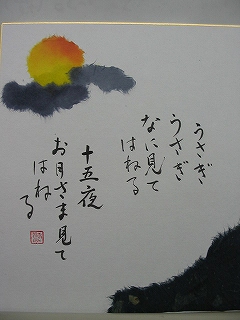 うさぎ
うさぎ
なに見て
はねる
十五夜
お月さま見て
はね
る